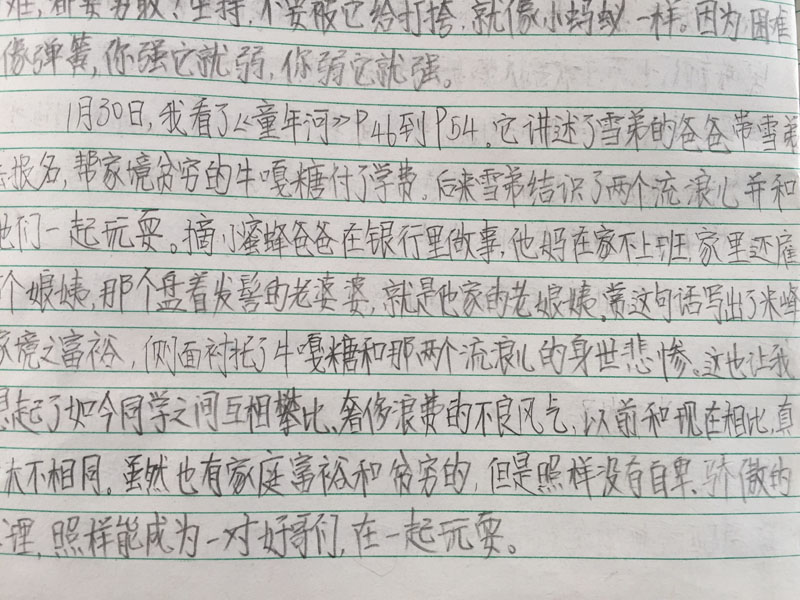 难,都要勇敢、坚持,不要被它给打挎,就像小蚂蚁一样。因为困难
像弹簧,你强它就弱,你弱它就强。
1月30日,我看了《童年河》P46到P54。它讲述了雪弟的爸爸带雪弟
去报名,帮家境贫穷的牛嘎糖付了学费。后来雪弟结识了两个流浪儿并和
他们一起玩耍。摘:小蜜蜂爸爸在银行里做事,他妈在家不上班,家里还雇
个娘姨,那个盘着发髻的老婆婆,就是他家的老娘姨。赏:这句话写出了米峰
家境之富裕,侧面衬托了牛嘎糖和那两个流浪儿的身世悲惨。这也让我
想起了如今同学之间互相攀比、奢侈浪费的不良风气,以前和现在相比,真
大不相同。虽然也有家庭富裕和贫穷的,但是照样没有自卑、骄傲的
理,照样能成为一对好哥们,在一起玩耍。